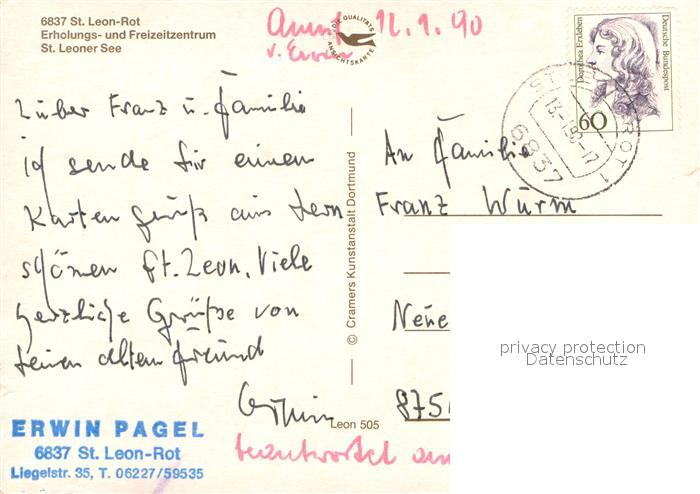 6837 St. Leon-Rot
Erholungs- und Freizeitzentrum
St. Leoner See
12.1.90
v. Erwin
DIE QUALITÄTS
ANSICHTSKARTE
Dorothea Erxleben
Deutsche Bundespost
60
6837
ROT 1
Lieber Franz u. Familie
ich sende Dir einen
Karten gruß aus dem
schönen St. Leon. Viele
herzliche Grüße von
Deinen alten Freund
Erwin
© Cramers Kunstanstalt Dortmund
An Familie
Franz Wurm
Neue
875
privacy protection
Datenschutz
Leon 505
ERWIN PAGEL
6837 St. Leon-Rot
Liegelstr. 35, T. 06227/59535
beantwortet am